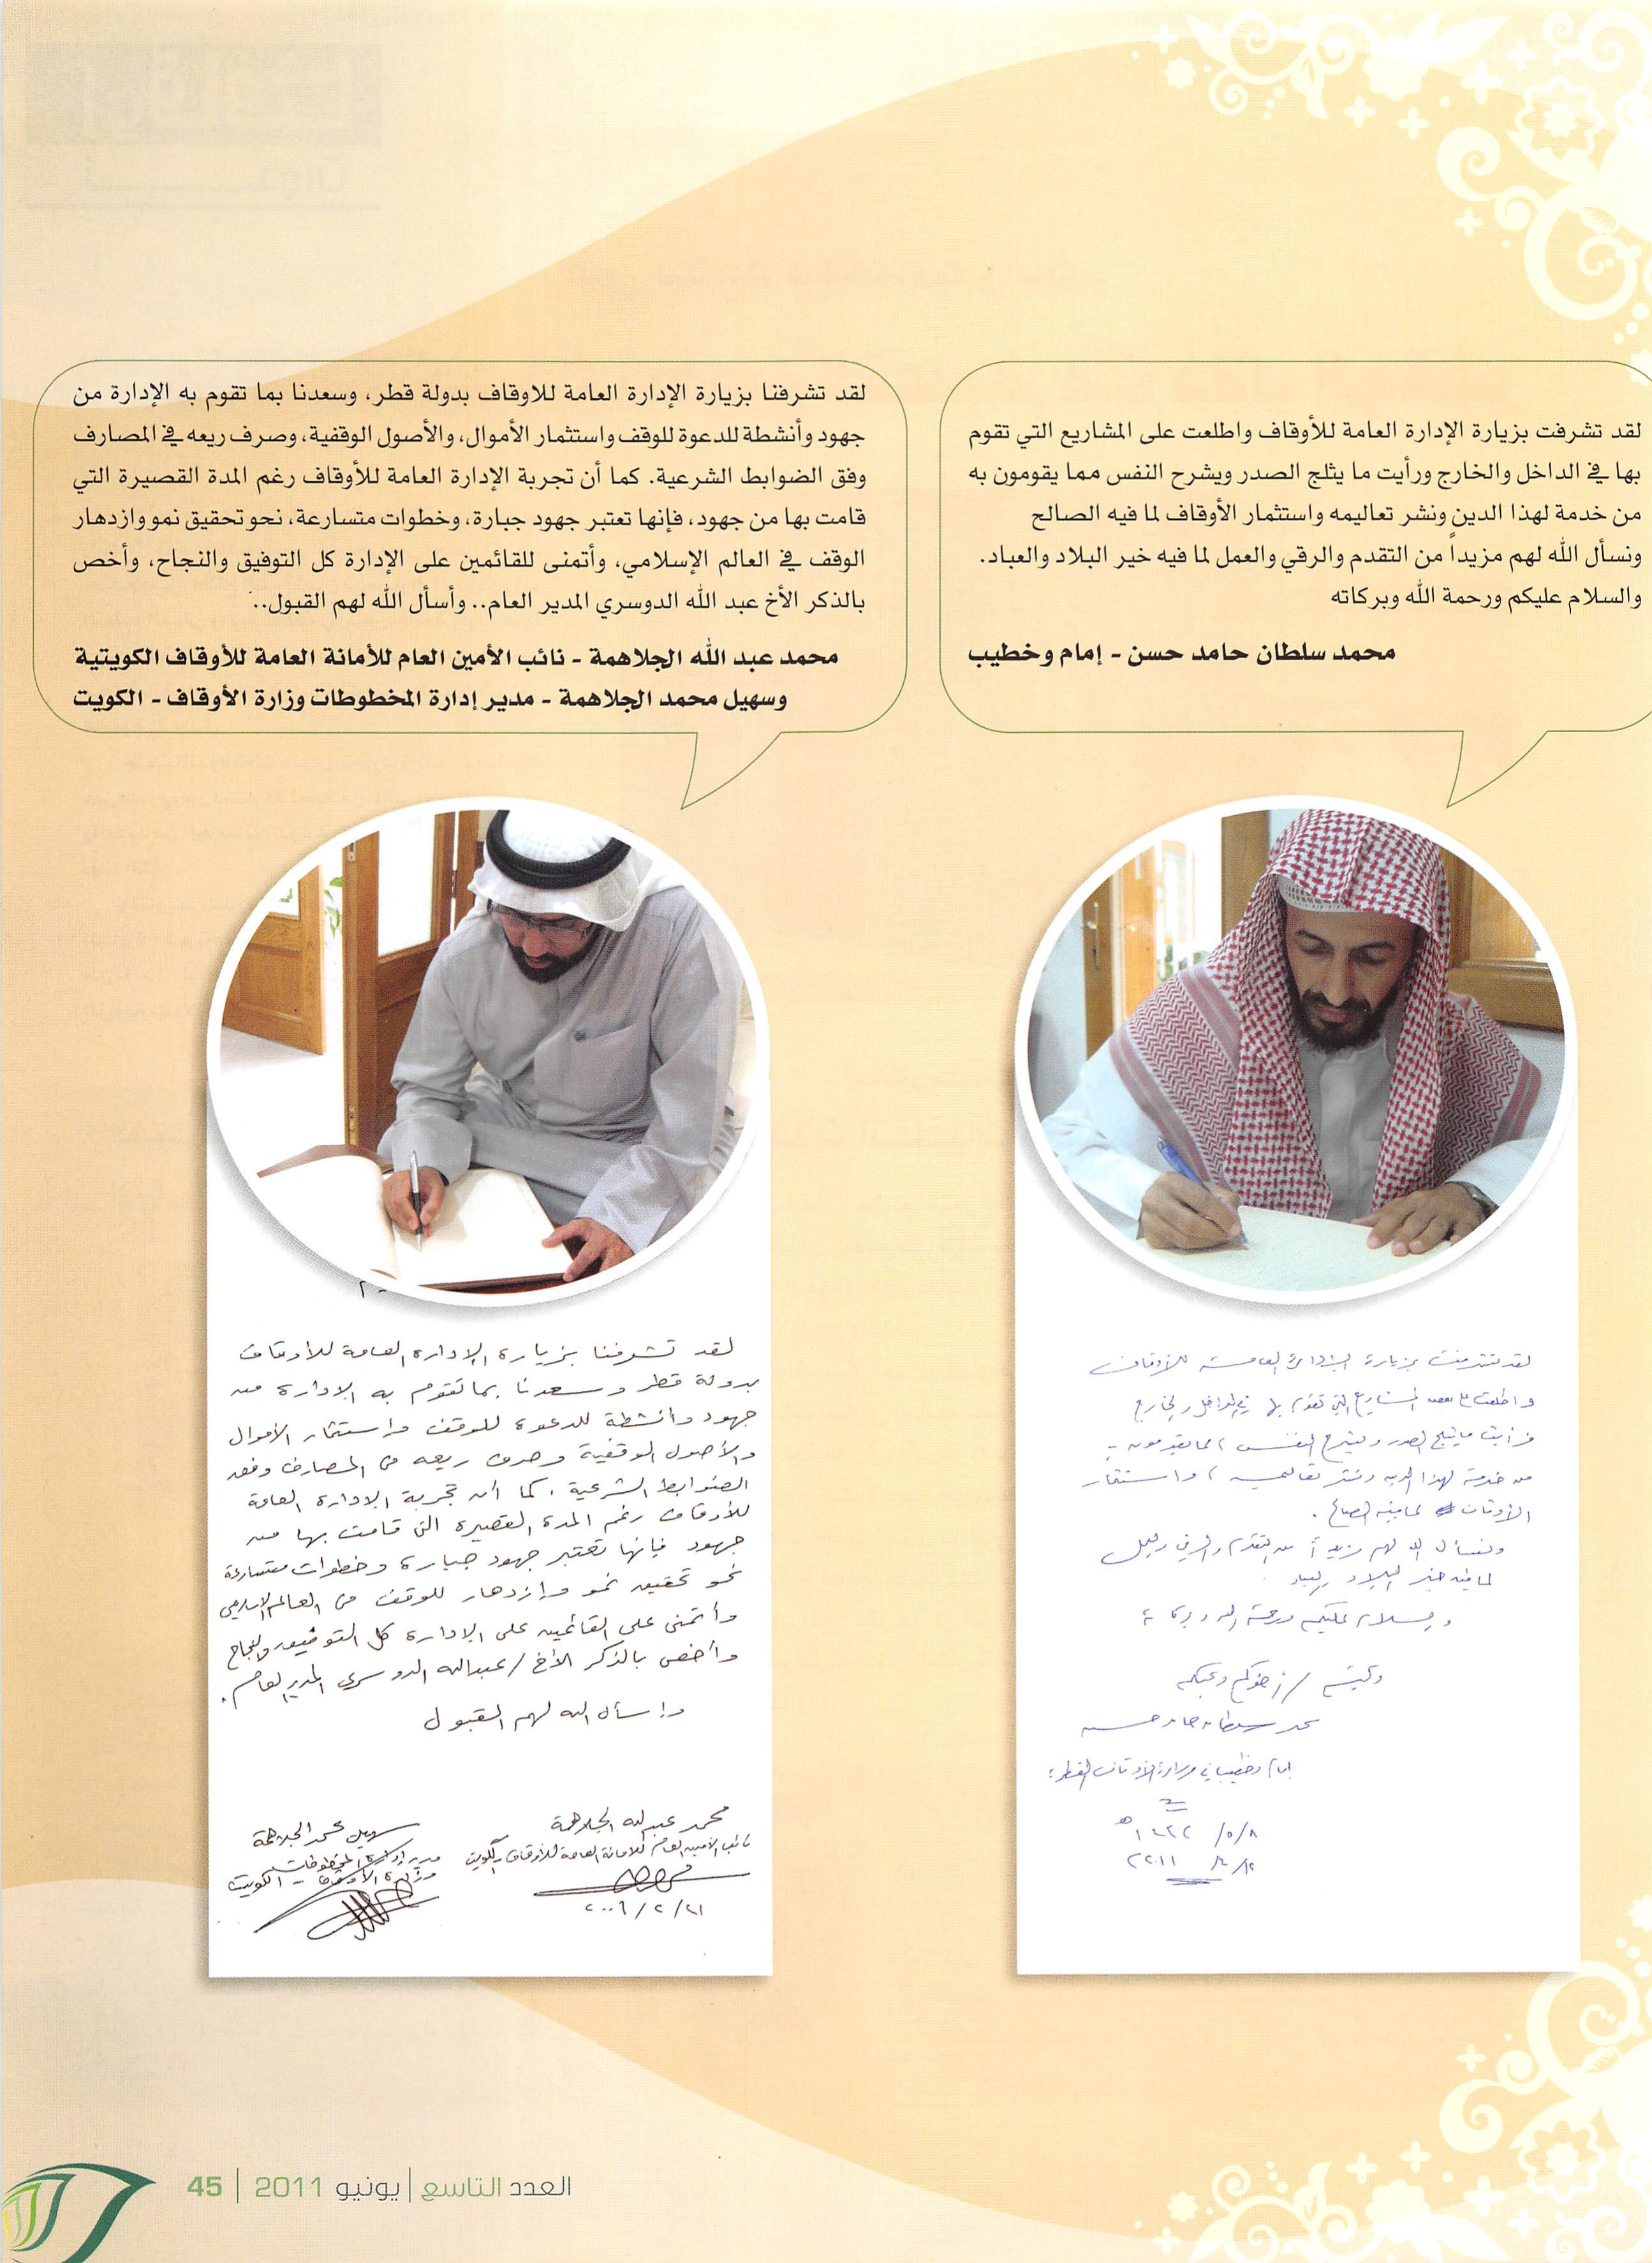 لقد تشرفت بزيارة الإدارة العامة للأوقاف واطلعت على المشاريع التي تقوم
بها في الداخل والخارج ورأيت ما يثلج الصدر ويشرح النفس مما يقومون به
من خدمة لهذا الدين ونشر تعاليمه واستثمار الأوقاف لما فيه الصالح
ونسأل الله لهم مزيداً من التقدم والرقي والعمل لما فيه خير البلاد والعباد.
والسلام عليكم ورحمة الله وبركاته
محمد سلطان حامد حسن - إمام وخطيب
لقد تشرفنا بزيارة الإدارة العامة للاوقاف بدولة قطر، وسعدنا بما تقوم به الإدارة من
جهود وأنشطة للدعوة للوقف واستثمار الأموال، والأصول الوقفية، وصرف ريعه في المصارف
وفق الضوابط الشرعية. كما أن تجربة الإدارة العامة للأوقاف رغم المدة القصيرة التي
قامت بها من جهود، فإنها تعتبر جهود جبارة، وخطوات متسارعة، نحو تحقيق نمو وازدهار
الوقف في العالم الإسلامي، وأتمنى للقائمين على الإدارة كل التوفيق والنجاح، وأخص
بالذكر الأخ عبد الله الدوسري المدير العام.. وأسأل الله لهم القبول..
محمد عبد الله الجلاهمة - نائب الأمين العام للأمانة العامة للأوقاف الكويتية
وسهيل محمد الجلاهمة - مدير إدارة المخطوطات وزارة الأوقاف - الكويت
لقد تشرفت بزيارة الإدارة العامة للأوقاف
واطلعت على بعض المشاريع التي تقوم بها في الداخل والخارج
فرأيت ما يثلج الصدر ويشرح النفس مما يقومون به
من خدمة لهذا الدين ونشر تعاليمه واستثمار
الأوقاف لما فيه الصالح.
ونسأل الله لهم مزيداً من التقدم والرقي والعمل
لما فيه خير البلاد والعباد
والسلام عليكم ورحمة الله وبركاته
وكتبه / أخوكم ومحبكم
محمد سلطان حامد حسن
إمام وخطيب في وزارة الأوقاف القطرية
٨/٥/١٤٣٢هـ
١٢/٤/٢٠١١
لقد تشرفنا بزيارة الإدارة العامة للأوقاف
بدولة قطر وسعدنا بما تقوم به الإدارة من
جهود وأنشطة للدعوة للوقف واستثمار الأموال
والأصول الوقفية وصرف ريعه في المصارف وفق
الضوابط الشرعية. كما أن تجربة الإدارة العامة
للأوقاف رغم المدة القصيرة التي قامت بها من
جهود فإنها تعتبر جهود جبارة وخطوات متسارعة
نحو تحقيق نمو وازدهار للوقف في العالم الإسلامي
وأتمنى على القائمين على الإدارة كل التوفيق والنجاح
وأخص بالذكر الأخ/عبدالله الدوسري المدير العام.
وأسأل الله لهم القبول
محمد عبدالله الجلاهمة
نائب الأمين العام للأمانة العامة للأوقاف - الكويت
سهيل محمد الجلاهمة
مدير إدارة المخطوطات
وزارة الأوقاف - الكويت
العدد التاسع | يونيو 2011 | 45